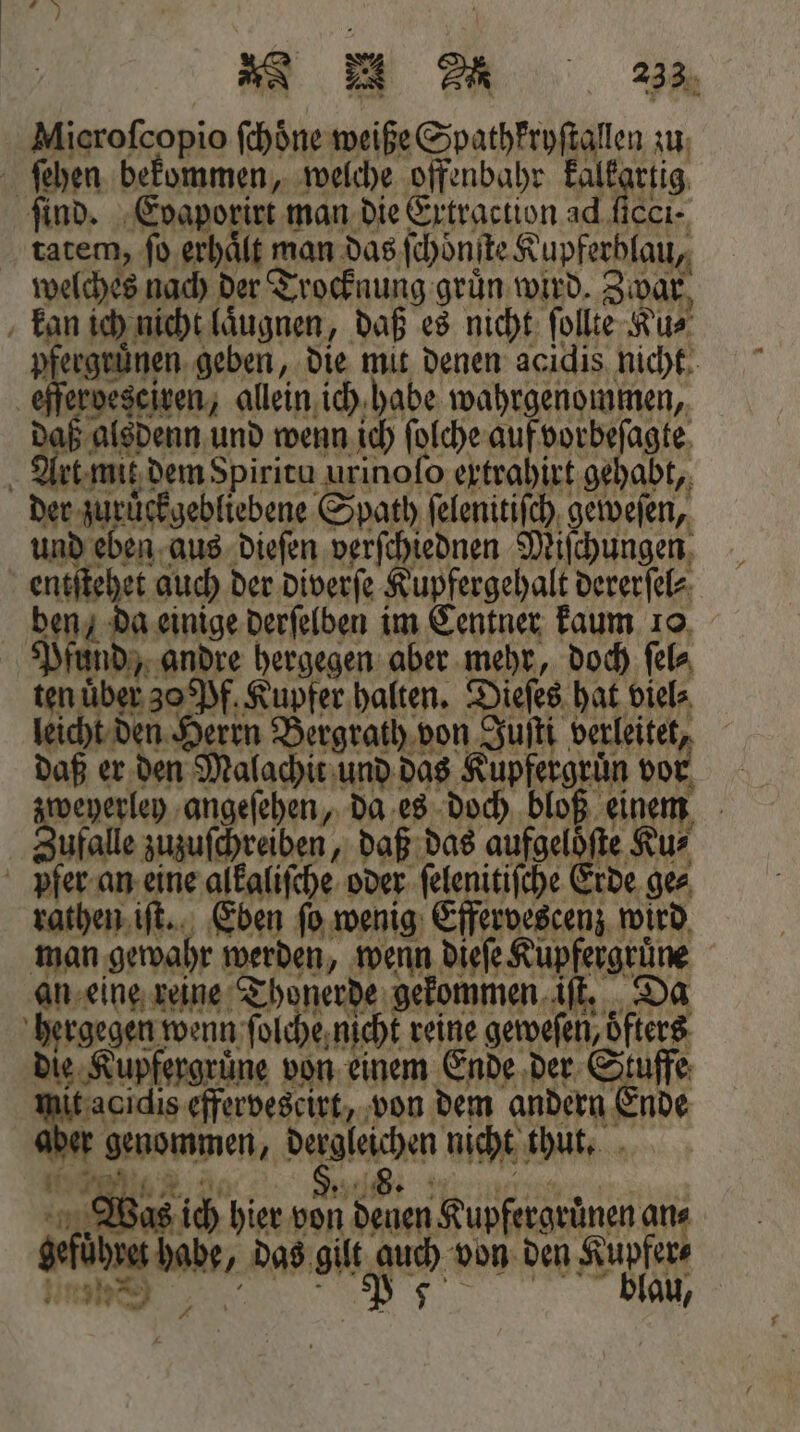 233.
Microſcopio ſchöne weiße Spathkryſtallen zu
ſehen bekommen, welche offenbahr kalkartig
ſind. Evaporirt man die Extraction ad ſicci-
tatem, ſo erhält man das ſchönſte Kupferblau,
welches nach der Trocknung grün wird. Zwar
kan ich nicht läugnen, daß es nicht ſollte Ku⸗
pfergrünen geben, die mit denen acidis nicht
effervesciren, allein ich habe wahrgenommen,
daß alsdenn und wenn ich ſolche auf vorbeſagte
Art mit dem Spiritu urinoſo extrahirt gehabt,
der zurückgebliebene Spath ſelenitiſch geweſen,
und eben aus dieſen verſchiednen Miſchungen
entſtehet auch der diverſe Kupfergehalt dererſel⸗
ben, da einige derſelben im Centner kaum 10
Pfund, andre hergegen aber mehr, doch ſel⸗
ten über 30 Pf. Kupfer halten. Dieſes hat viel⸗
leicht den Herrn Bergrath von Juſti verleitet,
daß er den Malachit und das Kupfergrün vor
zweyerley angeſehen, da es doch bloß einem
Zufalle zuzuſchreiben, daß das aufgelöſte Ku⸗
pfer an eine alkaliſche oder ſelenitiſche Erde ge⸗
rathen iſt. Eben ſo wenig Effervescenz wird
man gewahr werden, wenn dieſe Kupfergrüne
an eine reine Thonerde gekommen iſt. Da
hergegen wenn ſolche nicht reine geweſen, öfters
die Kupfergrüne von einem Ende der Stuffe
mit acidis effervescirt, von dem andern Ende
aber genommen, dergleichen nicht thut.
§. 8.
Was ich hier von denen Kupfergrünen an⸗
geführet habe, das gilt auch von den Kupfer⸗
P 5 blau,